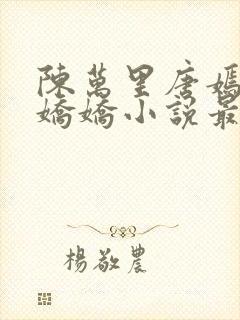 陳萬里唐嫣
嬌嬌小說最
楊敬農